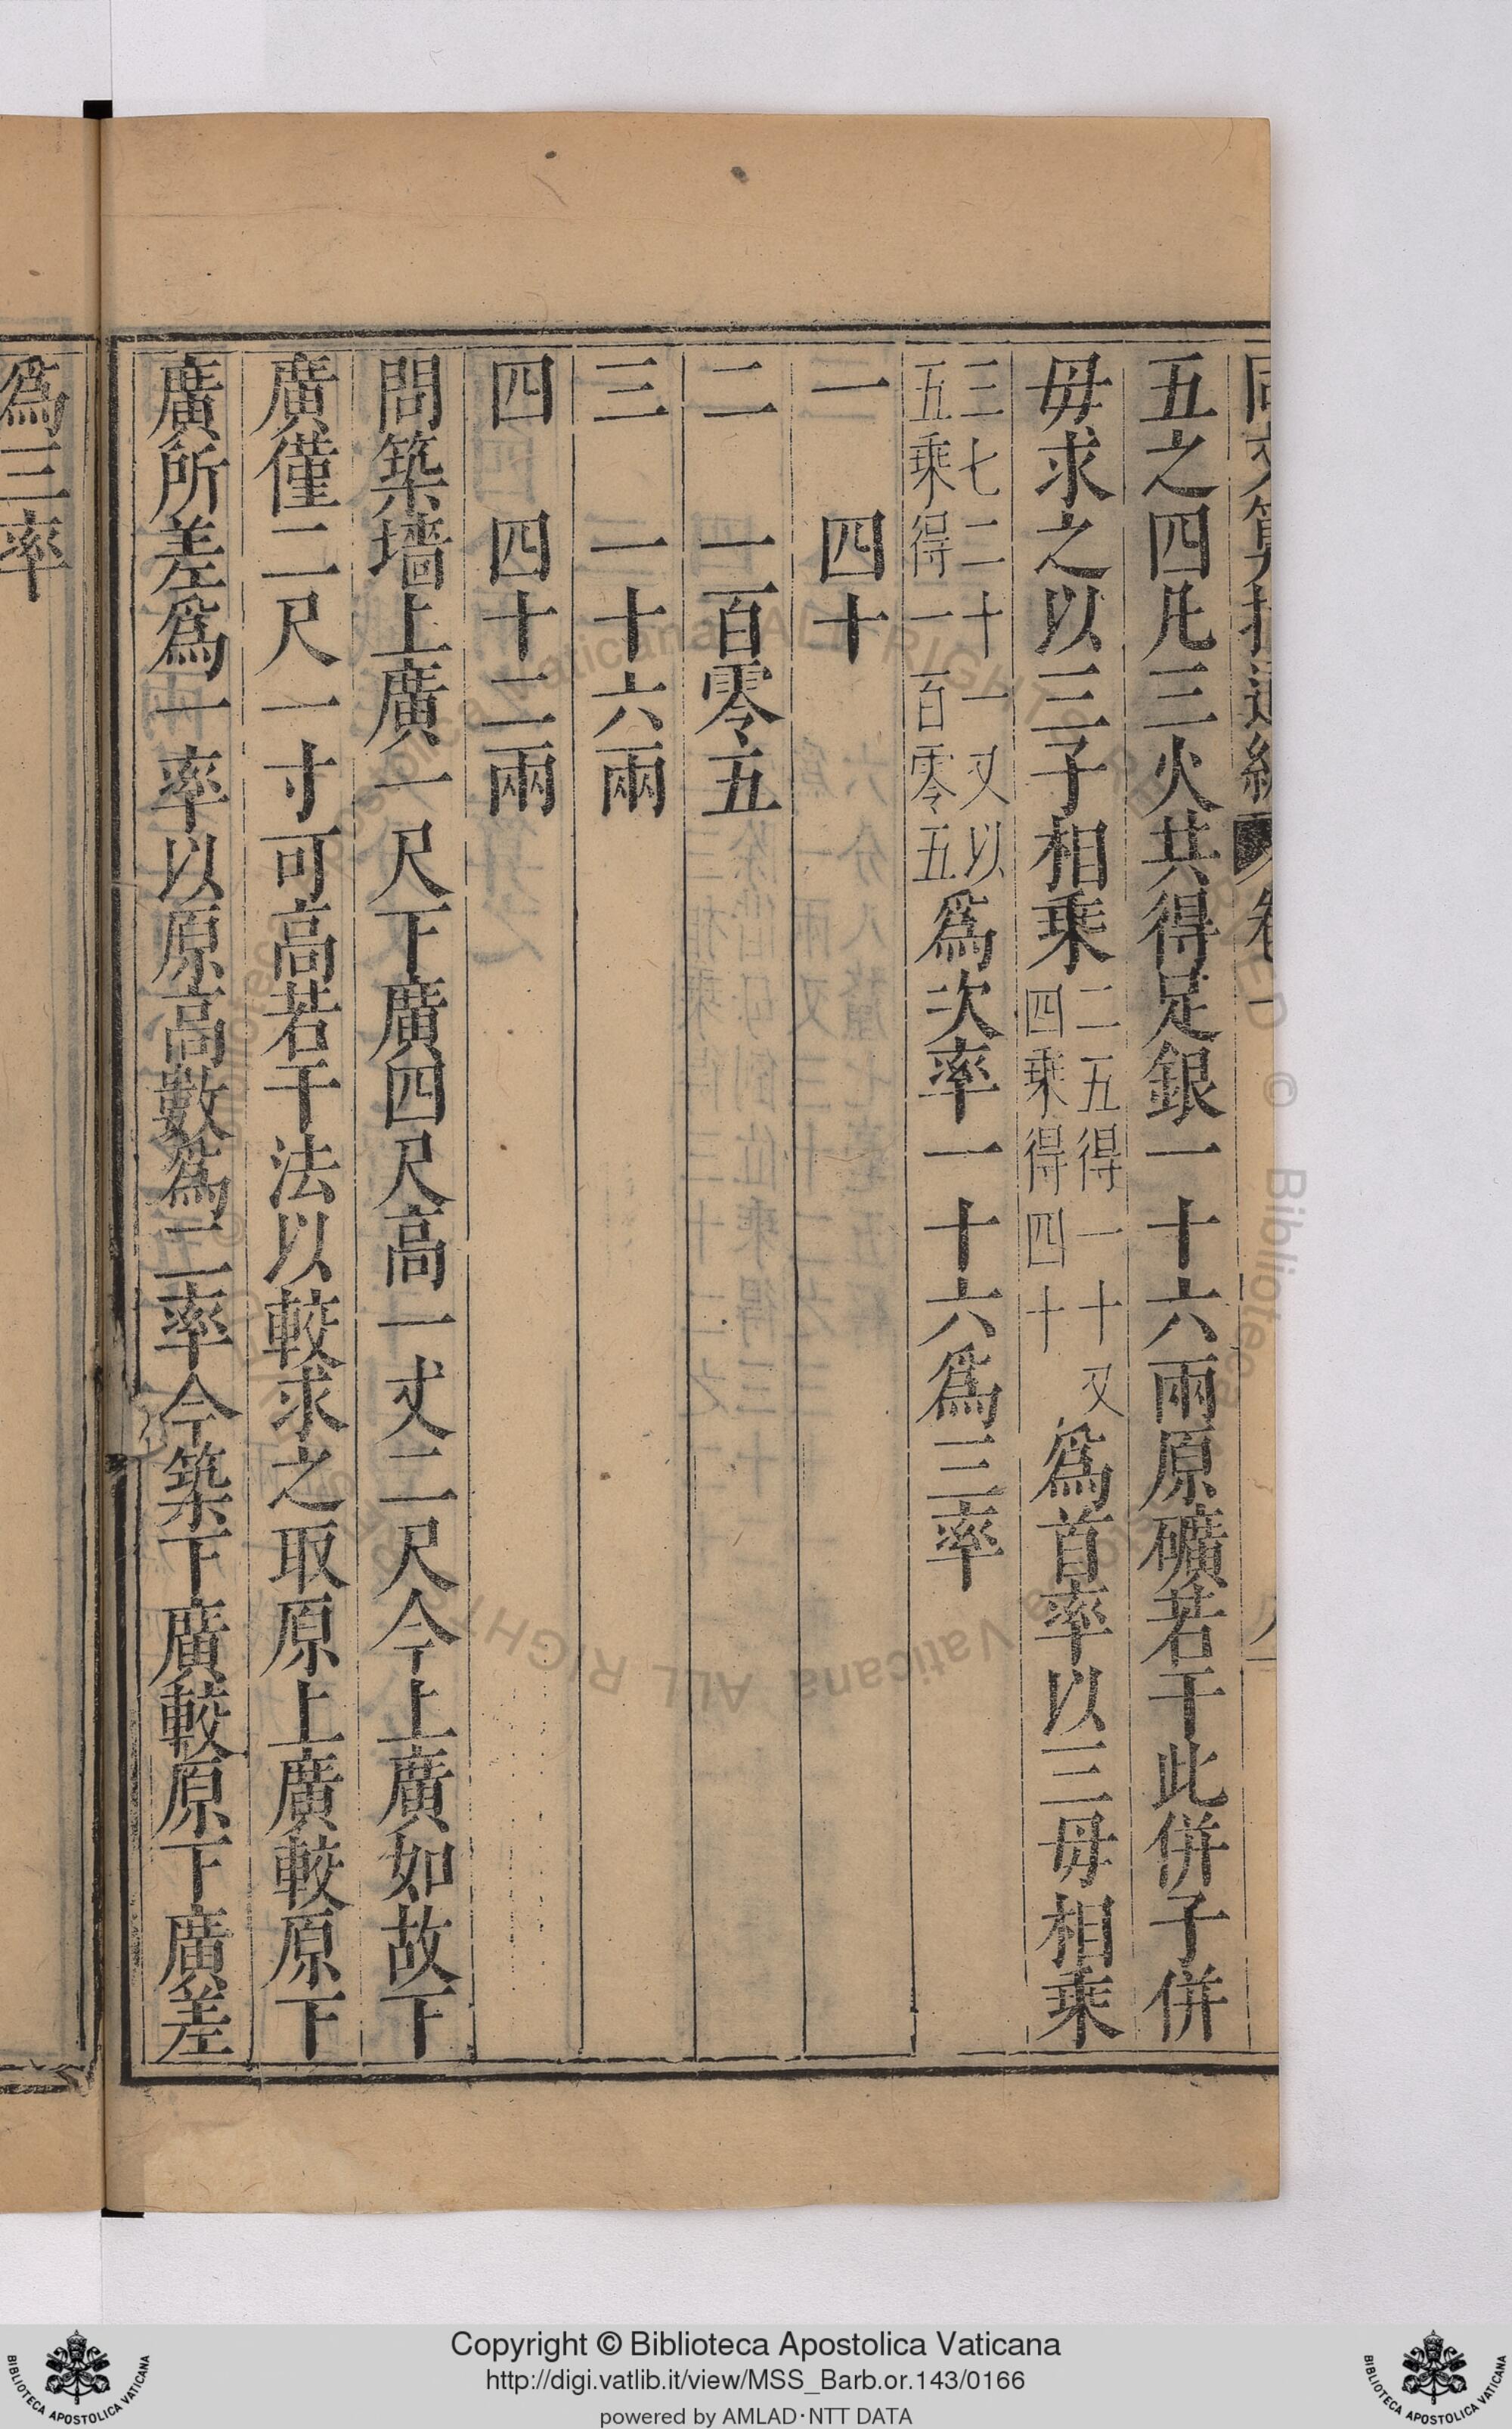 五之四凡三火共得足銀一十六兩原礦若干此併子併
毋求之以三子相乘二五得一十又四乘得四十為首率以三毋相乘
三七二十一又以五乘得一百零五為次率一十六為三率
一 四十
二 一百零五
三 一十六兩
四 四十二兩
問築墻上廣一尺下廣四尺高一丈二尺今上廣如故下
廣僅二尺一寸可高若干法以較求之取原上廣較原下
廣所差為一率以原高數為二率今築下廣較原下廣差
為三率
Copyright © Biblioteca Apostolica Vaticana
http://digi.vatlib.it/view/MSS_Barb.or.143/0166
powered by AMLAD·NTT DATA
BIBLIOTECA APOSTOLICA VATICANA
BIBLIOTECA APOSTOLICA VATICANA